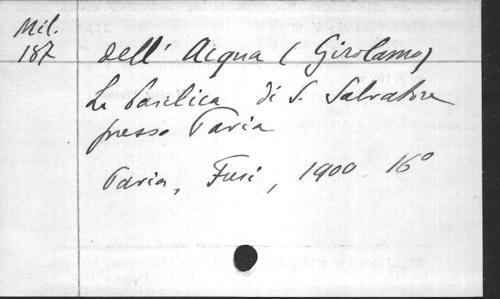 Mil.
187
dell' Acqua (Girolamo)
La basilica di S. Salvatore
presso Pavia
Pavia, Fusi, 1900 16°